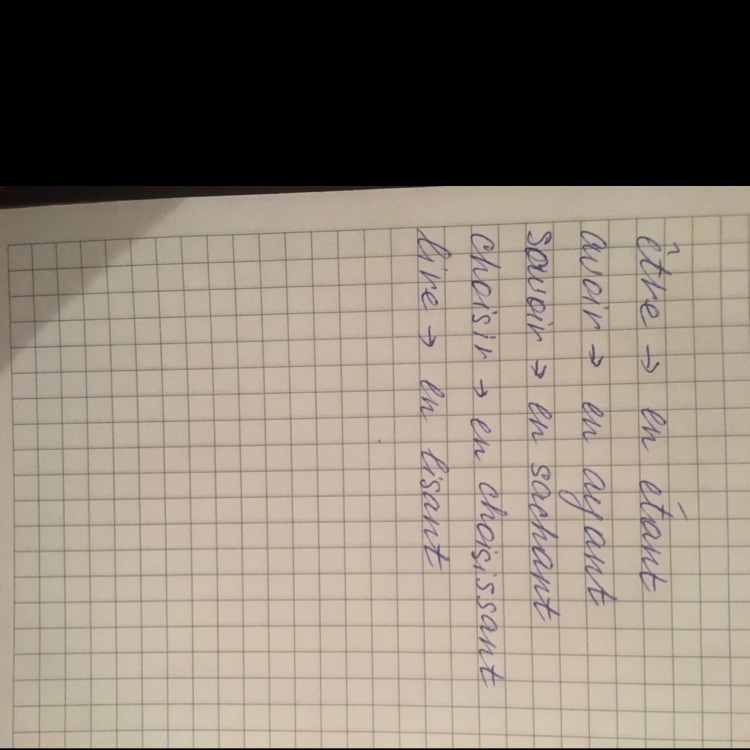 être → en étant
avoir → en ayant
savoir → en sachant
choisir → en choisissant
lire → en lisant